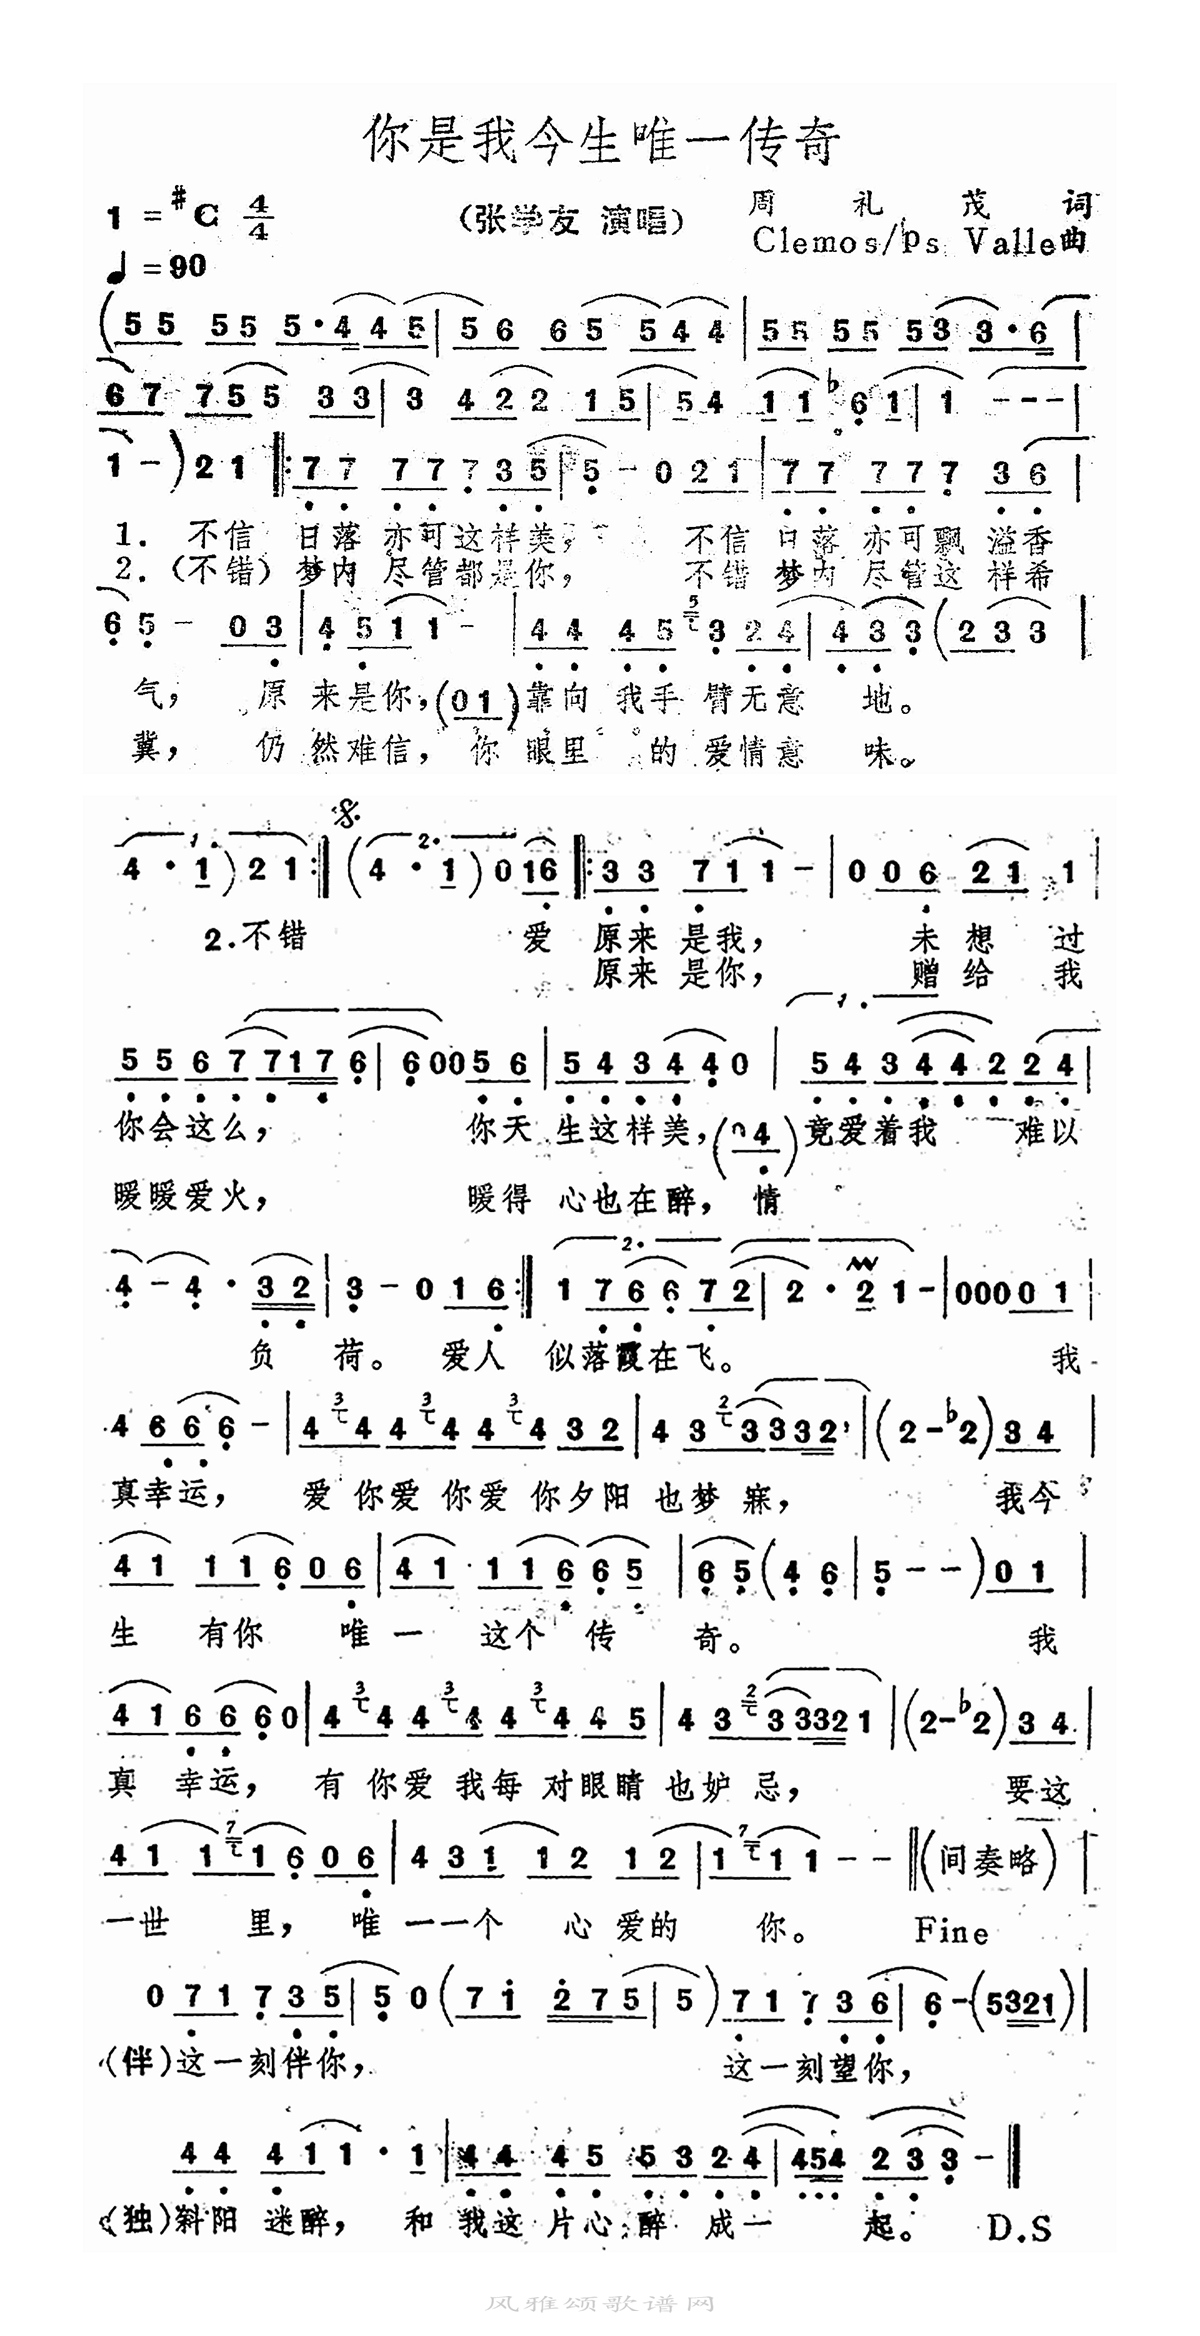 你是我今生唯一传奇
1 = #C 4/4 (张学友 演唱) 周礼茂 词
♩=90 Clemos/ps Valle曲
(55 55 5·445|56 65 544|55 55 53 3·6|
67 755 33|3 422 15|54 11 ♭61|1 ---|
1 -)21 ‖:77 77735|5 - 021|77 777 36|
1. 不信 日落 亦可这样美, 不信 日落 亦可飘 溢香
2.(不错)梦内 尽管都是你, 不错 梦内 尽管这 样希
65 - 03|4511 -|44 45 3 24|433(233|
气, 原 来是你,(01)靠向 我手 臂无意 地。
冀, 仍 然难信, 你 眼里 的 爱情意 味。
4·1)21:‖(4·1)016‖:33 711 -|006 21 1|
1. 2.
2.不错 爱 原来 是我, 未想 过
原来 是你, 赠给 我
55677176|60056|543440|5434422 4|
1.
你会这么, 你天 生这样美,(04)竟爱着我 难以
暖暖爱火, 暖得 心也在醉, 情
4 - 4·32|3 - 016:‖176672|2·21-|00001|
2.
负 荷。 爱人 似落霞在飞。 我
4666 -|44444432|4333 32|(2-♭2)34|
真幸运, 爱你爱你爱你夕阳也梦寐, 我今
41 11606|41 11665|65(46|5--)01|
生 有你 唯一 这个 传 奇。 我
416660|44444445|4333321|(2-♭2)34|
真 幸运, 有你爱我每对眼睛也妒忌, 要这
41 11606|431 12 12|111--‖(间奏略)|
一世 里, 唯一一个 心爱的 你。 Fine
071735|50(71 275|5)71736|6-(5321)|
(伴)这一刻伴你, 这一刻望你,
44 411·1|44 45 5324|454 233 -‖
(独)斜阳 迷醉, 和 我这 片心 醉 成一 起。 D.S
风雅颂歌谱网